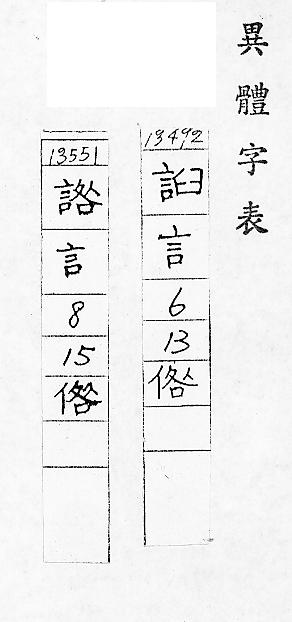 異體字表
13492
言
6
13
倃
13551
言
8
15
倃